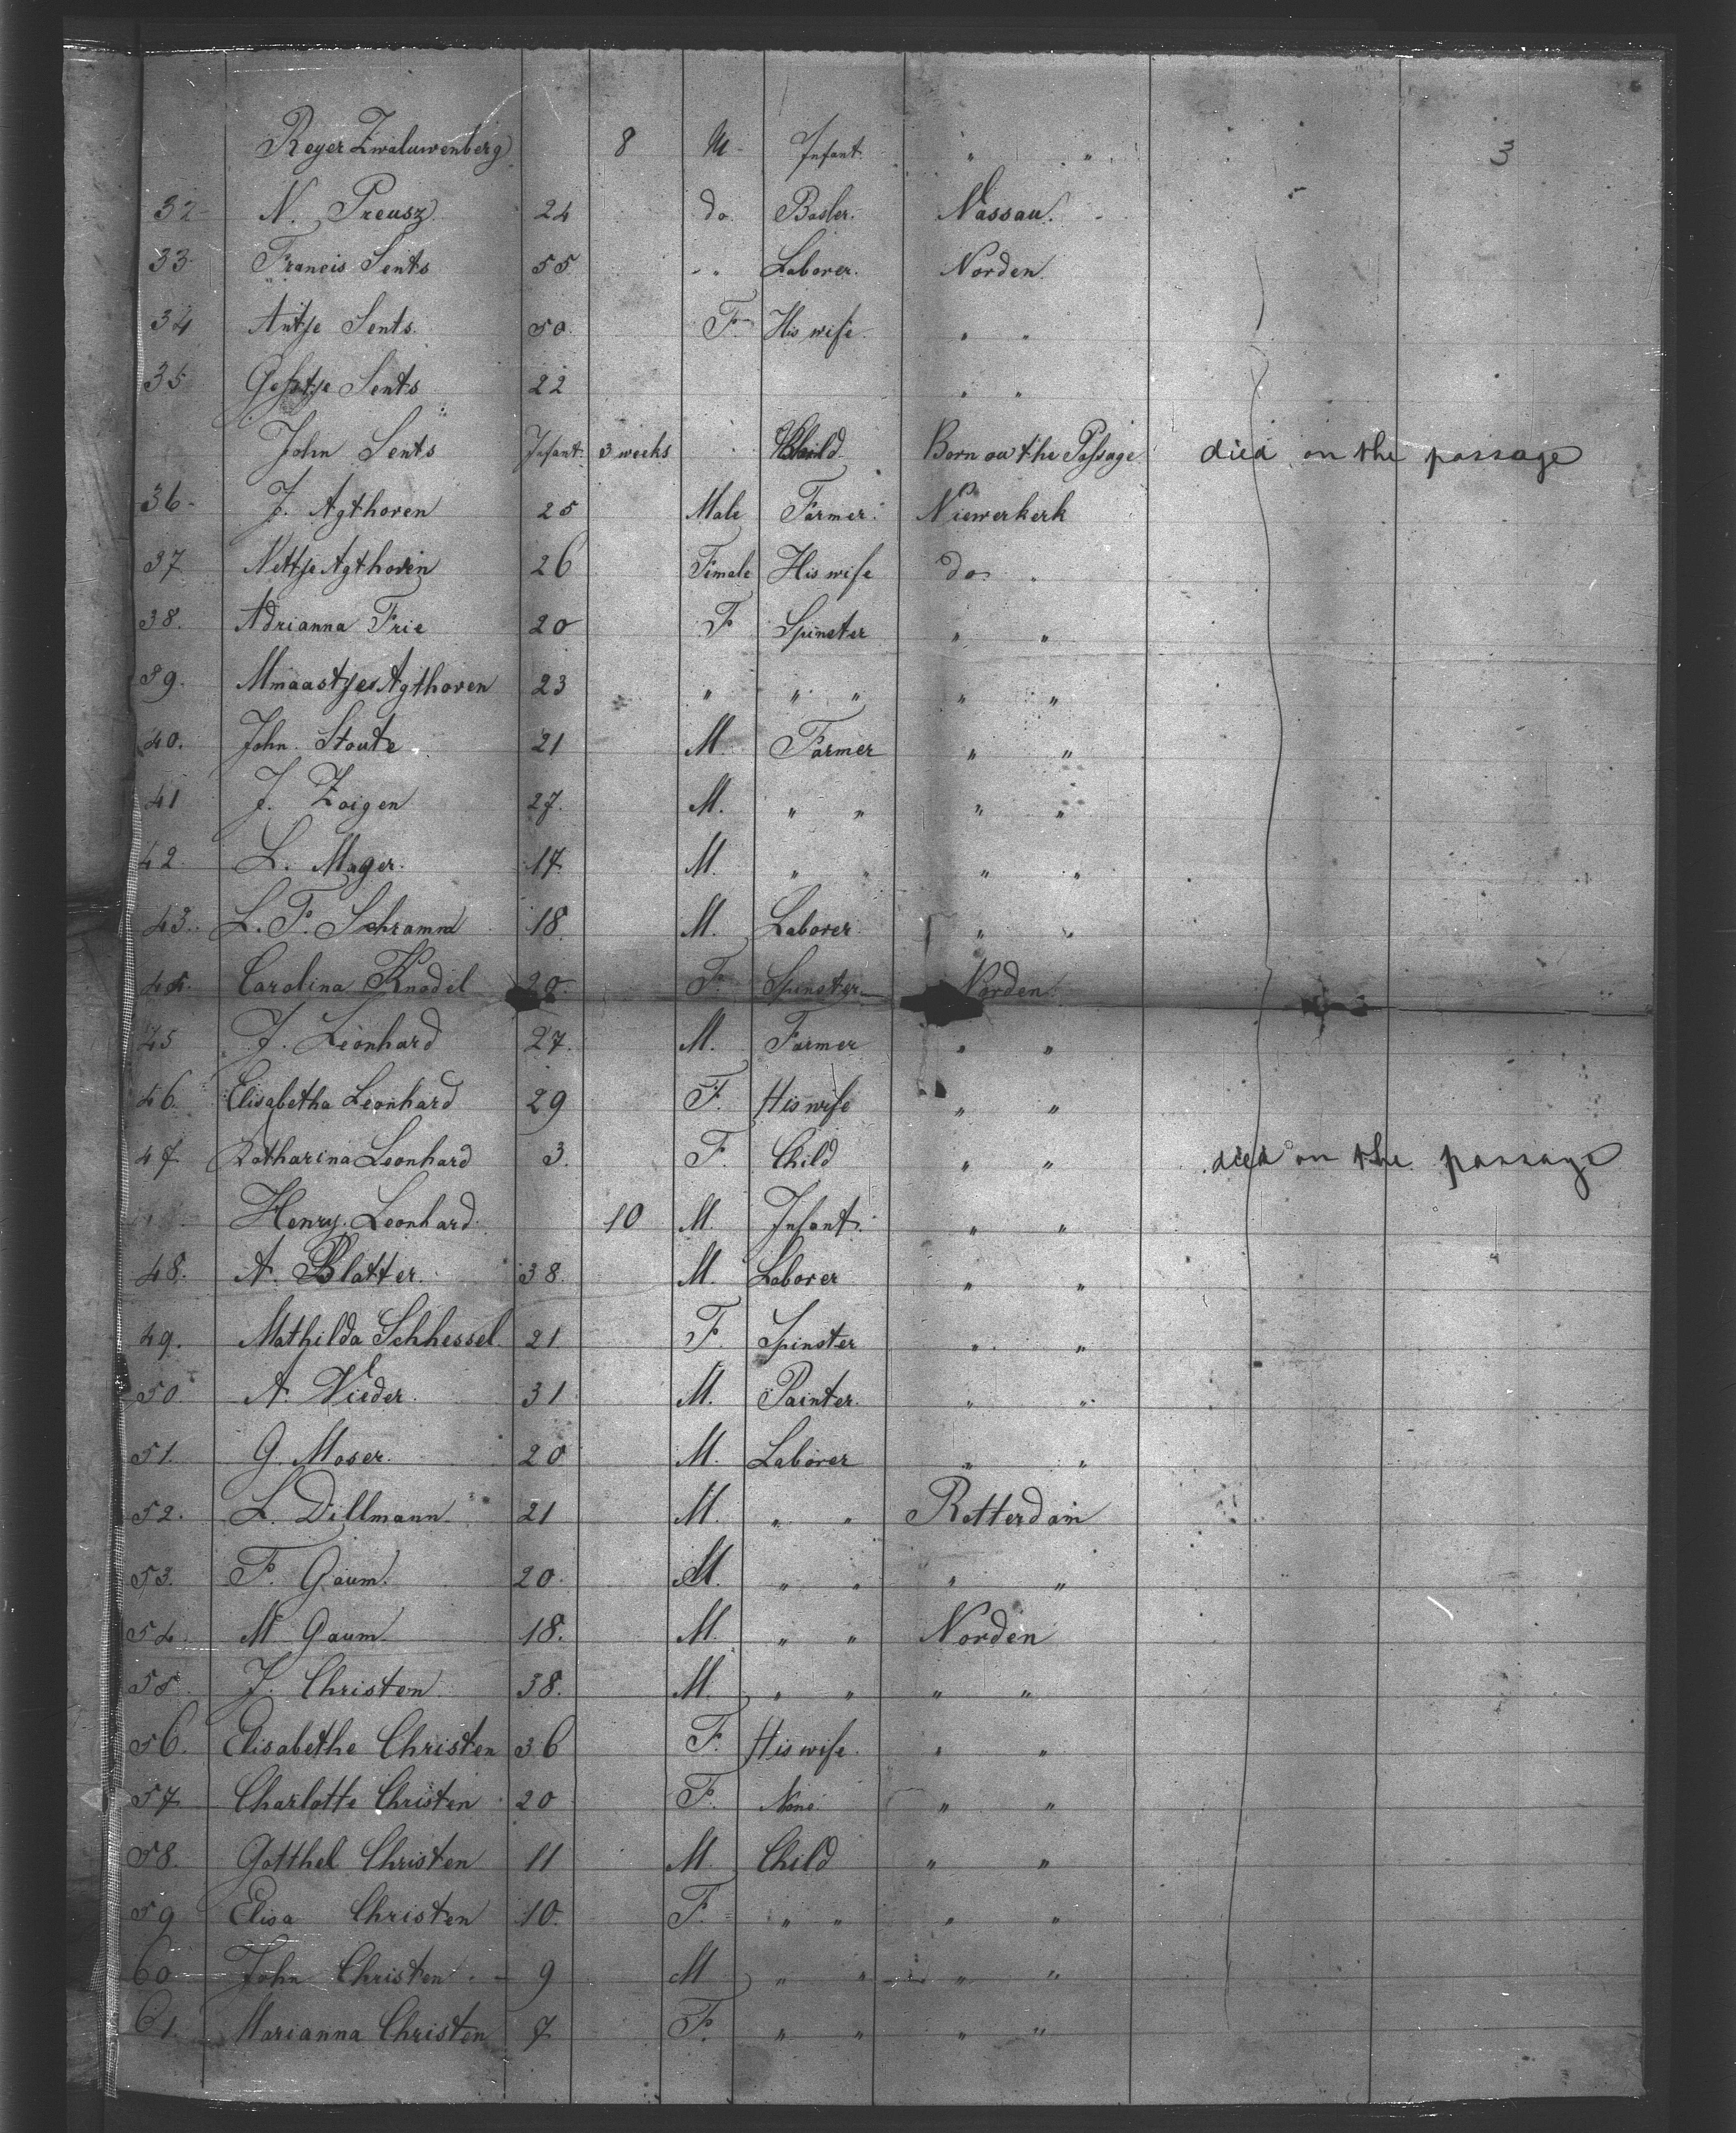 Reyer Zwaluwenberg 8 M Infant. " " 3
32 N. Preusz 24 do. Basler. Nassau.
33 Francis Sents 55 " Laborer. Norden
34 Antje Sents. 50. F His wife " "
35 Sents 22 " "
John Sents Infant. 3 weeks Child Born on the Passage died on the passage
36 J. Agthoven 25 Male Farmer. Niewerkerk
37 Nettje Agthoven 26 Female His wife do "
38. Adrianna Frie 20 F Spinster " "
39. Mmaastje Agthoven 23 " " " " "
40. John Stoute 21 M. Farmer " "
41 J. Zoigen 27. M. " " " "
42 L. Mager. 17. M. " " " "
43. L. F. Schramm 18. M. Laborer " "
44. Carolina Knodel 20. F. Spinster Norden
45 J. Leonhard 27. M. Farmer " "
46. Elisabetha Leonhard 29 F. His wife " "
47 Katharina Leonhard 3. F. Child " " died on the passage
Henry Leonhard 10 M. Infant. " "
48. A. Blatter. 38. M. Laborer " "
49. Mathilda Schhessel 21 F. Spinster " "
50. A. Vieder. 31 M. Painter. " "
51. G. Moser. 20 M. Laborer " "
52. L. Dillmann 21 M. " " Rotterdam
53. F. Gaum. 20. M. " " " "
54. M Gaum 18. M. " " Norden
55. J. Christen 38. M. " " " "
56. Elisabethe Christen 36 F. His wife. " "
57 Charlotte Christen 20 F. None " "
58. Gotthel Christen 11 M. Child " "
59 Elisa Christen 10. F. " " " "
60 John Christen 9 M " " " "
61. Marianna Christen 7 F. " " " "